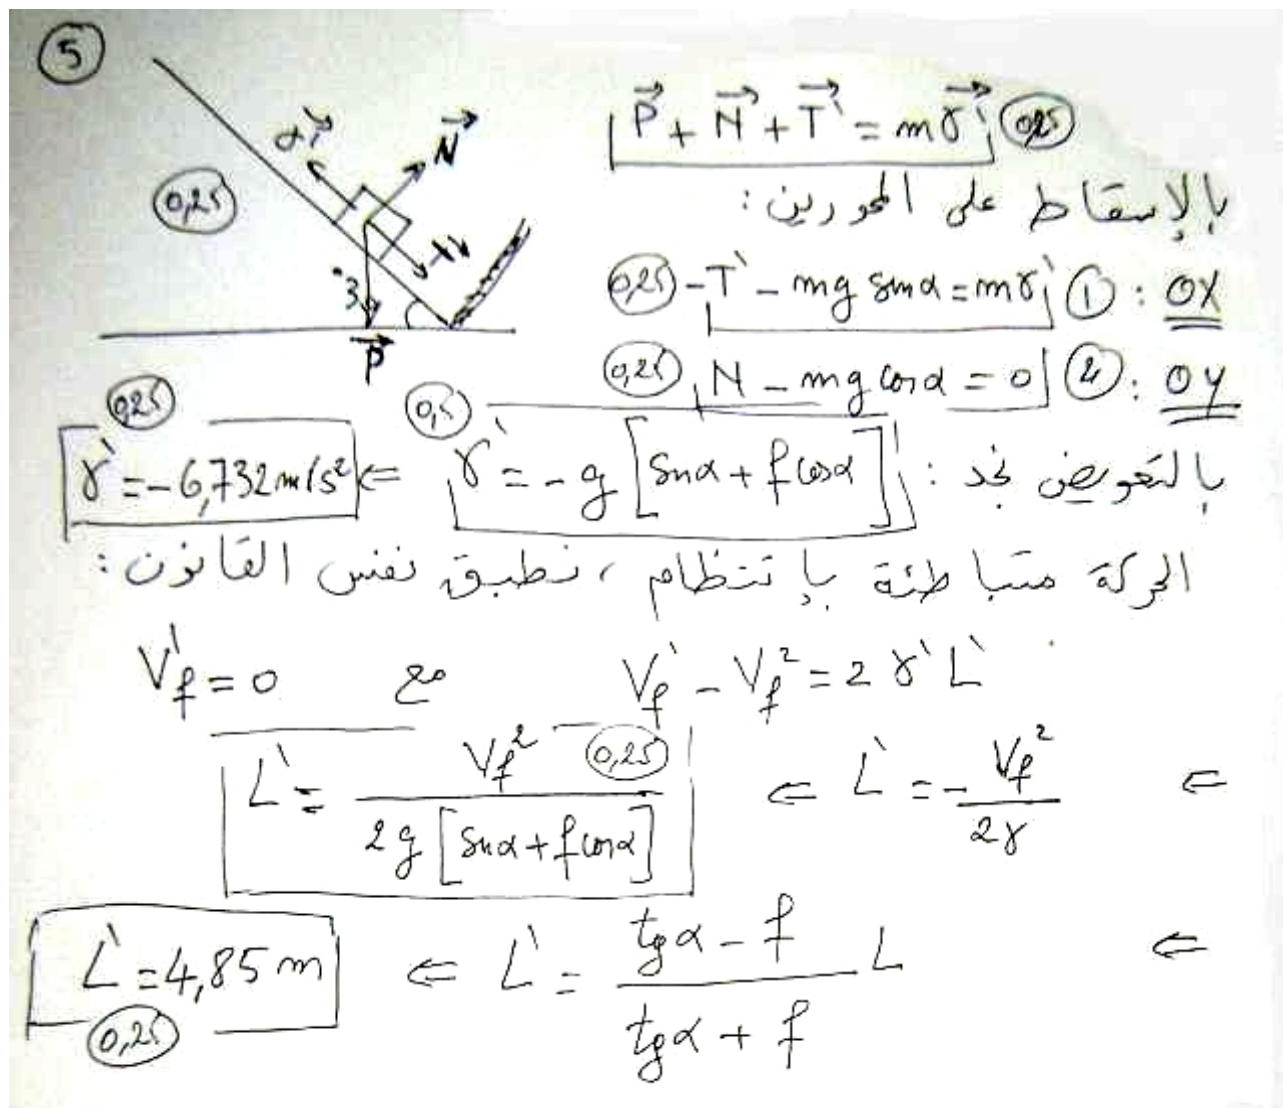 5
P + N + T' = mγ' 0,25
بالإسقاط على المحورين :
N
0,25
P
OX : ① -T' - mg sinα = mγ' 0,25
OY : ② N - mg cosα = 0 0,25
بالتعويض نجد : γ' = -g [sinα + f cosα] 0,5 ⇐ γ' = -6,732 m/s² 0,25
الحركة متباطئة بإنتظام ، نطبق نفس القانون :
V'f - Vf² = 2 γ' L' مع V'f = 0
⇐ L' = - Vf² / 2γ ⇐ L' = Vf² / 2g [sinα + f cosα] 0,25
⇐ L' = tgα - f / tgα + f L ⇐ L' = 4,85 m
0,25